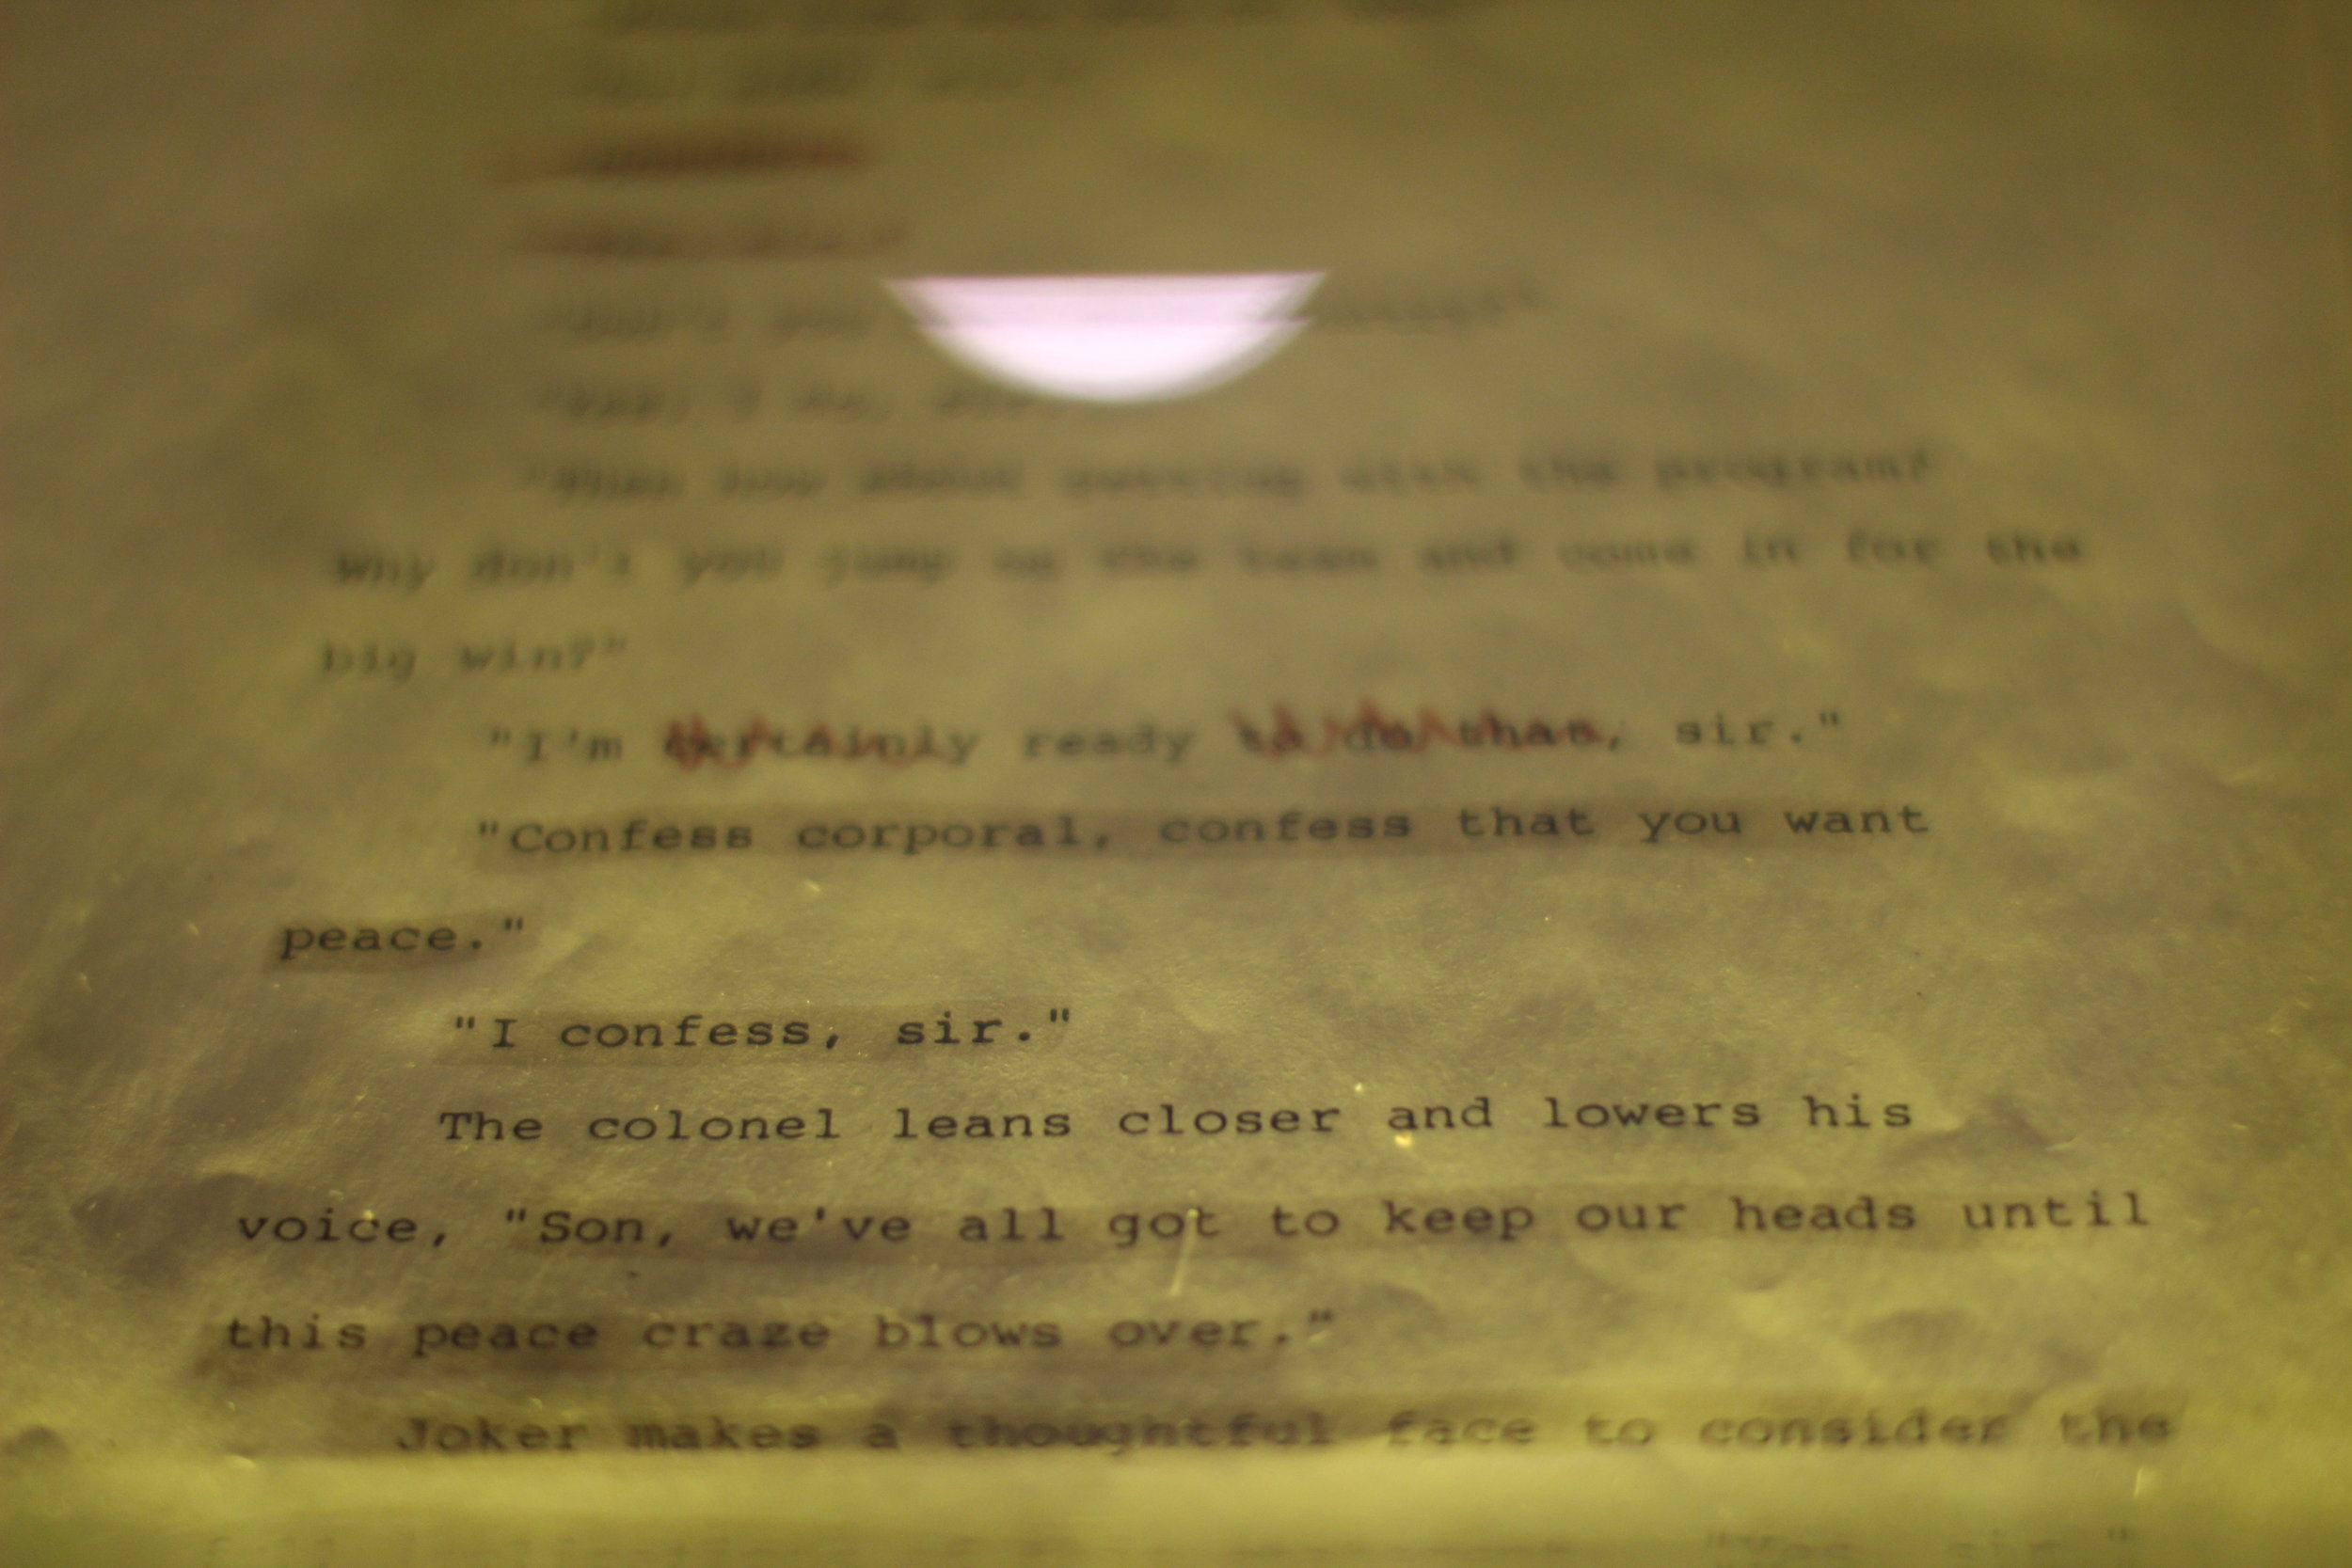 "Don't you
"Yes, I do, sir.
"Then how about getting with the program?
Why don't you jump on the team and come in for the
big win?"
"I'm certainly ready to do that, sir."
"Confess corporal, confess that you want
peace."
"I confess, sir."
The colonel leans closer and lowers his
voice, "Son, we've all got to keep our heads until
this peace craze blows over."
Joker makes a thoughtful face to consider the
"Yes, sir."